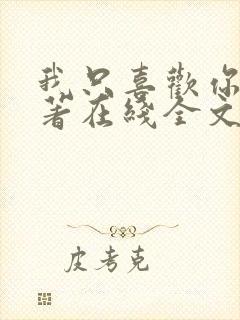 我只喜歡你
著在綫全文
皮考克